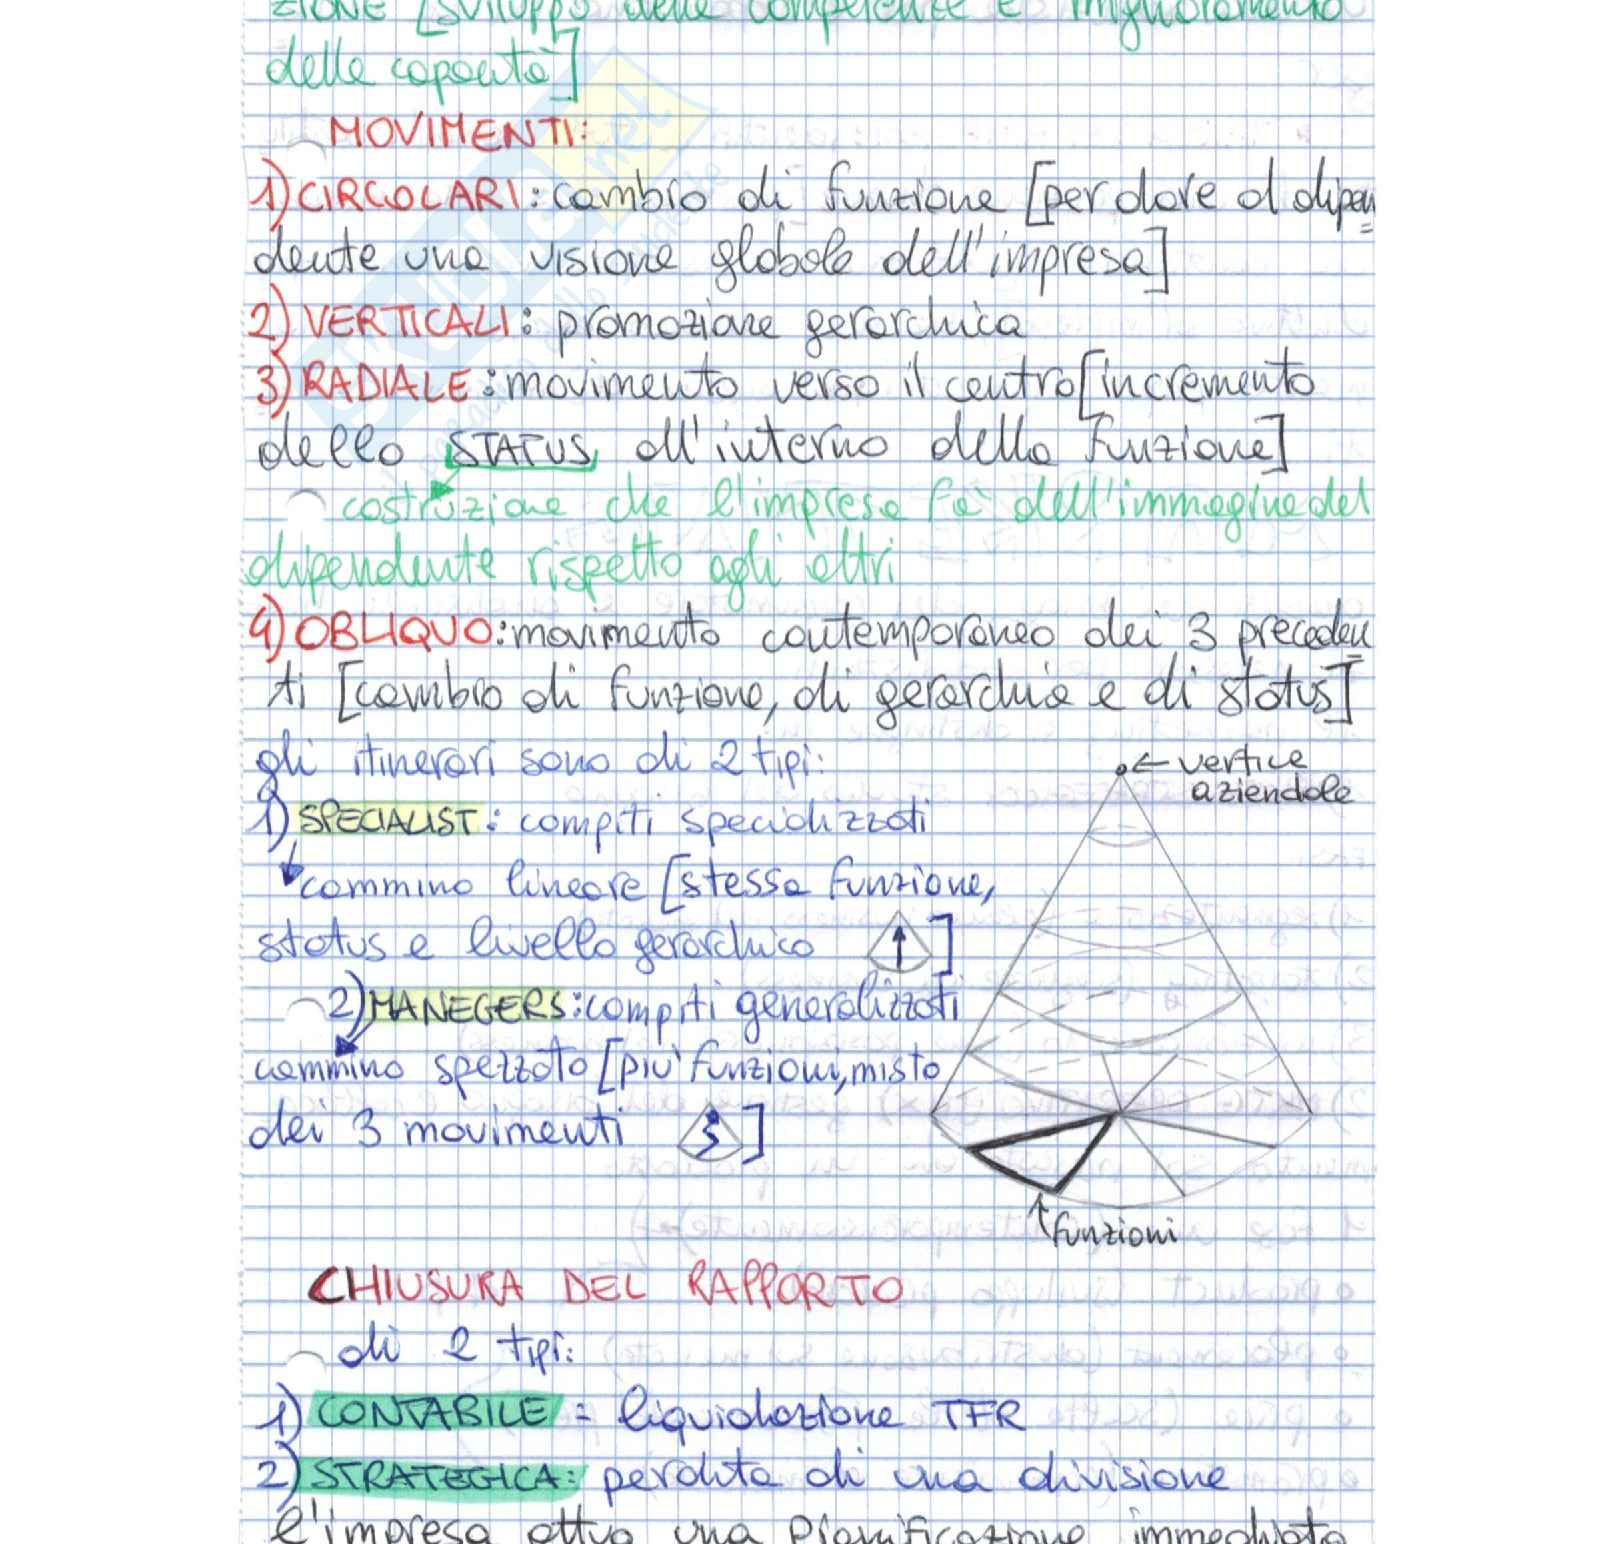 ZIONE [sviluppo delle competenze e miglioramento
delle capacità]
MOVIMENTI:
1) CIRCOLARI: cambio di funzione [per dare al dipen
dente una visione globale dell'impresa]
2) VERTICALI: promozione gerarchica
3) RADIALE: movimento verso il centro [incremento
dello STATUS all'interno della funzione]
costruzione che l'impresa fà dell'immagine del
dipendente rispetto agli altri
4) OBLIQUO: movimento contemporaneo dei 3 preceden
ti [cambio di funzione, di gerarchia e di status]
gli itinerari sono di 2 tipi:
← vertice
aziendale
1) SPECIALIST: compiti specializzati
cammino lineare [stessa funzione,
status e livello gerarchico ]
2) MANEGERS: compiti generalizzati
cammino spezzato [più funzioni, misto
dei 3 movimenti ]
funzioni
CHIUSURA DEL RAPPORTO
di 2 tipi:
1) CONTABILE = liquidazione TFR
2) STRATEGICA: perdita di una divisione
l'impresa attua una pianificazione immediata